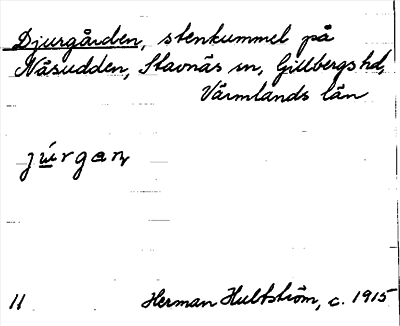 Djurgården, stenkummel på
Näsudden, Stavnäs sn, Gillbergs hd,
Värmlands län
júrgan
11 Herman Hultström, c. 1915